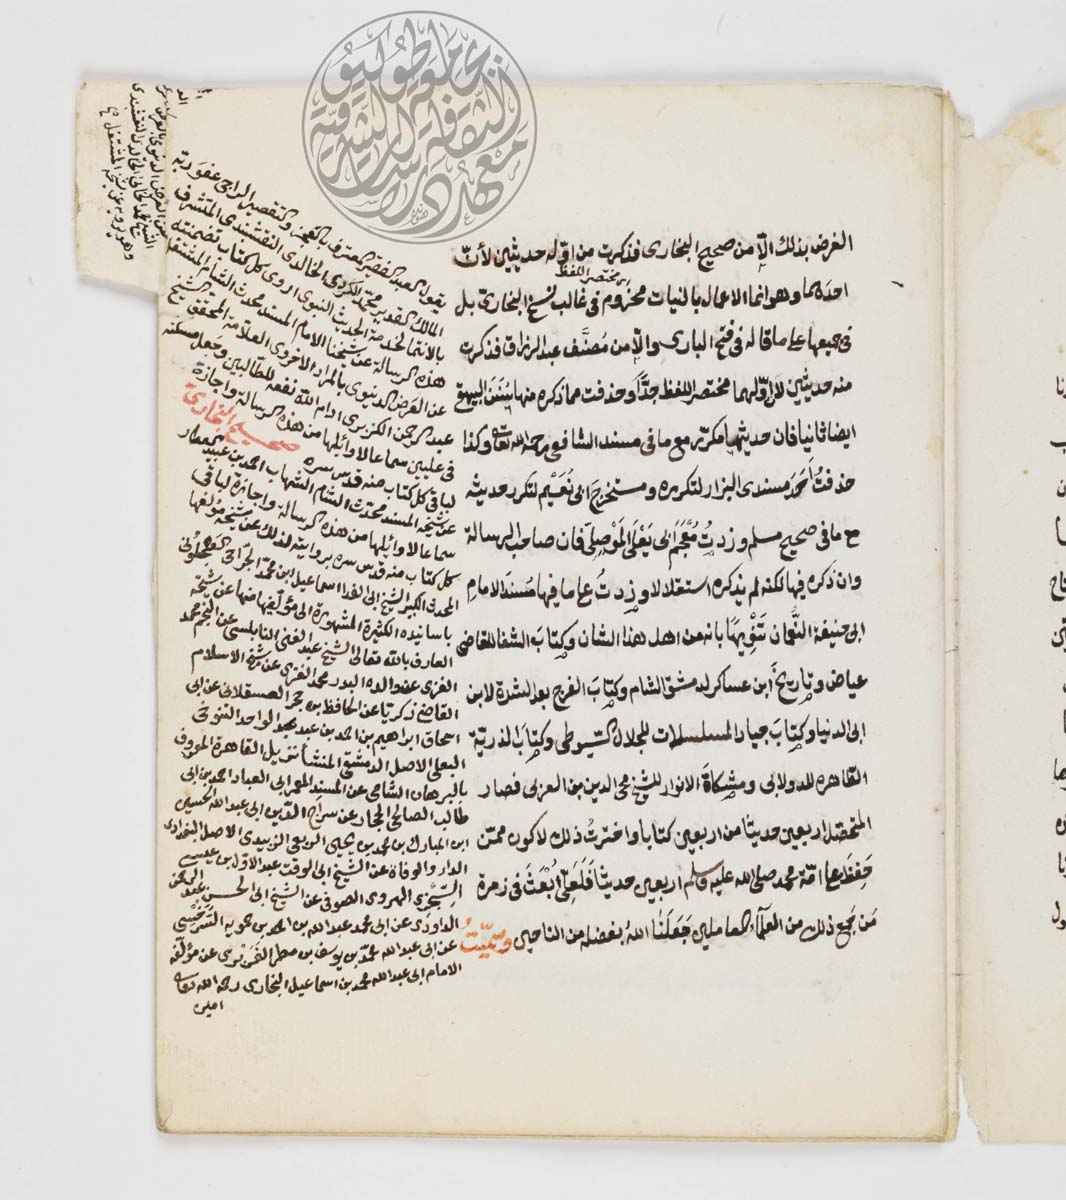 الغرض بذلك الّا من صحيح البخارى فذكرت من اوّله حديثين لأنّ
اى مختصر اللفظ
احدهما وهو انما الاعمال بالنيات مخزوم فى غالب نسخ البخارىّ بل
فى جميعها على ما قاله فى فتح البارى والّا من مُصَنَّف عبد الرزاق فذكرت
منه حديثين لان اوّلهما مختصر اللفظ جدًّا وحذفت مما ذكره منها سُنَنَ البيهقى
ايضا ثانيا فان حديثهما مكرّر مع ما فى مسند الشافعى رحمه الله تعالى وكذا
حذفتُ أحَدَ مسندى البزار لتكرره ومستخرجَ ابى نُعَيْم لتكرر حديثه
مع ما فى صحيح مسلم وزدتُ مُعْجَمَ ابى يَعْلَى المَوْصِلى فان صاحب الرسالة
وان ذكره فيها لكنه لم يذكره استقلالا وزدتُ على ما فيها مُسنَدَ الامامِ
ابى حنيفة النُّعمان تَنْوِيهًا بانه من اهل هذا الشان وكتابَ الشفا للقاضى
عياض وتاريخَ ابن عساكر لدمشق الشام وكتابَ الفرج بعد الشدة لابن
ابى الدنيا وكتابَ جياد المسلسلات للجلال السّيوطى وكتابَ الذرّيّة
الطّاهرة للدولابى ومشكاةَ الانوار للشيخ محى الدين بن العربى فصار
المتحصّل اربعين حديثا من اربعين كتابا واخترتُ ذلك لاكون ممّن
حفظَ على امّة محمد صلى الله عليه وسلم اربعين حديثا فَلَعَلّى أُبْعَثُ فى زمرة
مَن جَمع ذلك من العلماء العاملين جَعَلَنَا اللهُ بفضله من الناجين وسمّيتُ
يقول العبد الفقير المعترف بالعجز والتقصير الراجى عفو ربه
المالك القدير محمد الكردى الخالدى النقشبندى المتشرف
بالانتما لخدمة الحديث النبوى اروى كل كتاب تضمنته
هذه الرسالة عن شيخنا الامام المسند محدث الشام المشتغل
عن العَرَض الدنيوى بالمراد الاخروى العلّامة المحقق الشيخ
عبد الرحمن الكزبرى ادام الله نفعه للطالبين وجعل مسكنه
فى عليين سماعا لاوائلها من هذه الرسالة واجازة
لباقى كل كتاب منه قدس سره صحيح البخارىّ
عن شيخه المسند محدث الشام الشهاب احمد بن عبيد العطار
سماعا لاوائلها من هذه الرسالة واجازة لباقى
كل كتاب منه قدس سره بروايته لذلك عن شيخه مؤلفها
المحدث الكبير الشيخ ابى الفدا اسماعيل ابن محمد الجرّاحى العجلونى
باسانيده الكثيرة المشهورة الى مؤلفيها منها عن شيخه
العارف بالله تعالى الشيخ عبد الغنى النابلسى عن النجم محمد
الغزى عن والده البدر محمد الغزى عن شيخ الاسلام
القاضى زكريا عن الحافظ بن حجر العسقلانى عن ابى
اسحاق ابراهيم بن احمد بن عبد الواحد التنوخى
البعلى الاصل الدمشقى المنشأ نزيل القاهرة المعروف
بالبرهان الشامى عن المسند المعمر ابى العباد احمد بن ابى
طالب الصالحى الحجار عن سراج الدين ابى عبد الله الحسين
ابن المبارك بن محمد بن يحيى الربعى الزبيدى الاصل البغدادى
الدار والوفاة عن الشيخ ابى الوقت عبد الاول بن عيسى
السِّجْزى الهروى الصوفى عن الشيخ ابى الحسن عبد الرحمن
الداودى عن ابى محمد عبد الله بن احمد بن حمويه السَّرَخْسى
عن ابى عبد الله محمد بن يوسف بن مطر الفَرَبْرى عن مؤلّفه
الامام ابى عبد الله محمد بن اسماعيل البخارى رحمه الله تعالى
امين
عن العرض الدنيوى بالعرض
الشيخ محمد الخانى الخالدى النقشبندى
وهو يرويه عن شيخه المشتغل
جامعة طوكيو
معهد الدراسات الشرقية